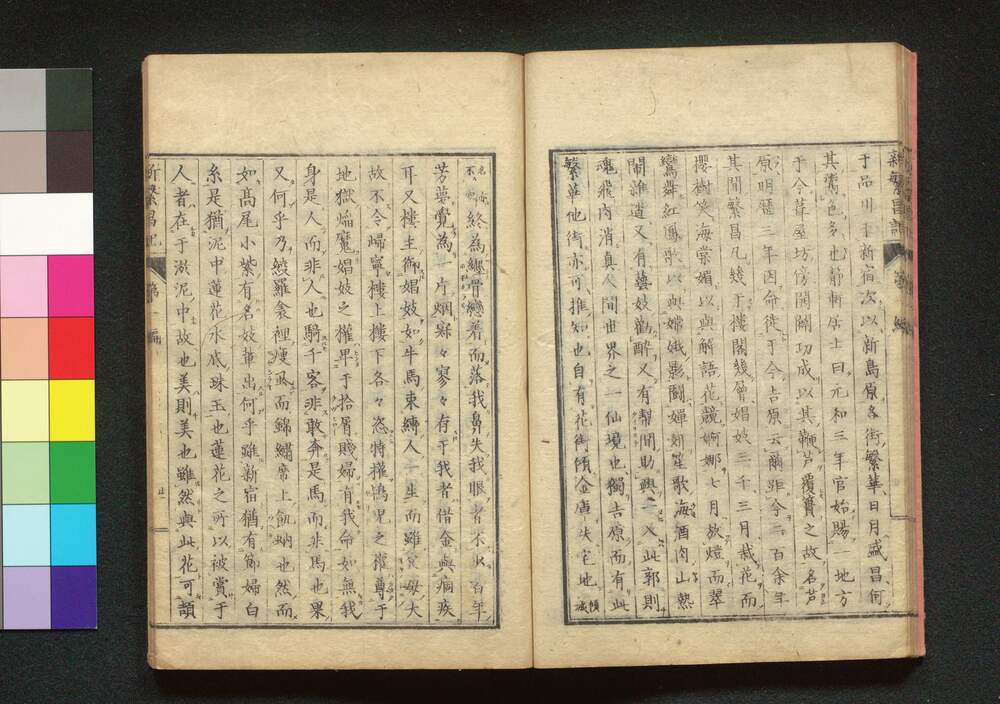 于品川于新宿次以新島原各街繁華日月盛昌何
其鬻色多也靜軒居士曰元和三年官始賜一地方
于今葺屋坊傍開闢功成以其鞭芦覆賽之故名芦
原明曆三年因命徙于今吉原云爾距今二百余年
其間繁昌凡幾于樓閣幾曾娼妓三千三月栽花而
櫻樹笑海棠媚以與解語花競婀娜七月放燈而翠
鸞舞紅鳳歌以與嫦娥影鬪嬋妍笙歌海酒肉山熱
鬧雜還又有藝妓勸醉又有幇間助興一入此郭則
魂飛肉消真人間世界之一仙境也獨吉原而有此
繁華他街亦可推知也自有花街傾金廬失宅地傾城
終為纏骨纏着而落我鼻失我眼者不少百年
芳夢覺為一片烟寂々寥々有于我者借金與痼疾
耳又樓主御娼妓如牛馬束縛人一生而雖父母大
故不令歸寧樓上樓下各々恣特權鴇兒之權尊于
地獄焔魔娼妓之權卑于拾屑賤婦有我命如無我
身是人而非人也騎千客非敢奔是馬而非馬也果
又何乎乃綾羅衾裡瘦虱而錦繡席上飢蚋也然而
如高尾小紫有名妓輩出何乎雖新宿猶有節婦白
糸是猶泥中蓮花水底珠玉也蓮花之所以被賞于
人者在于淤泥中故也美則美也雖然與此花可頡
新繁昌記 第一編